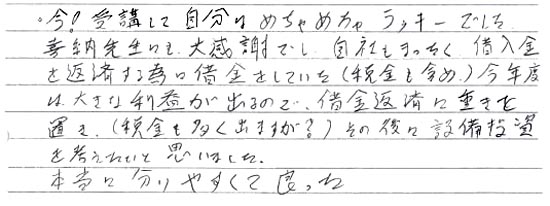 ・今！受講して自分はめちゃめちゃラッキーでした
喜納先生にも、大感謝でし、自社もまったく、借入金
を返済する為に借金をしていた（税金も含め）今年度
は大きな利益が出るので、借金返済に重きを
置き、（税金も多く出ますが？）その後に設備投資
を考えたいと思いました。
本当に分りやすくて良った